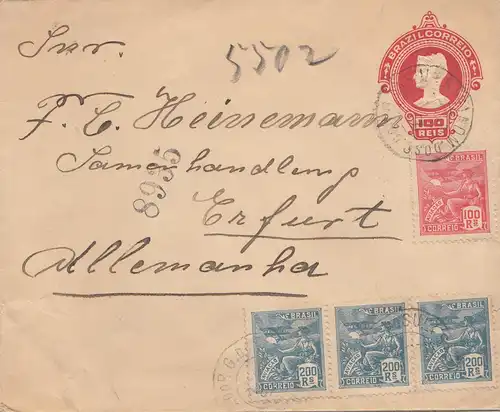 Snr.
5502
BRAZIL CORREIO
100
REIS
F. C. Heinemann
Samenhandlung
8935
Erfurt
Allemanha
BRASIL
AVIAÇÃO
100 Rs
CORREIO
BRASIL
AVIAÇÃO
200 Rs
CORREIO
BRASIL
AVIAÇÃO
200 Rs
CORREIO
BRASIL
AVIAÇÃO
200 Rs
CORREIO